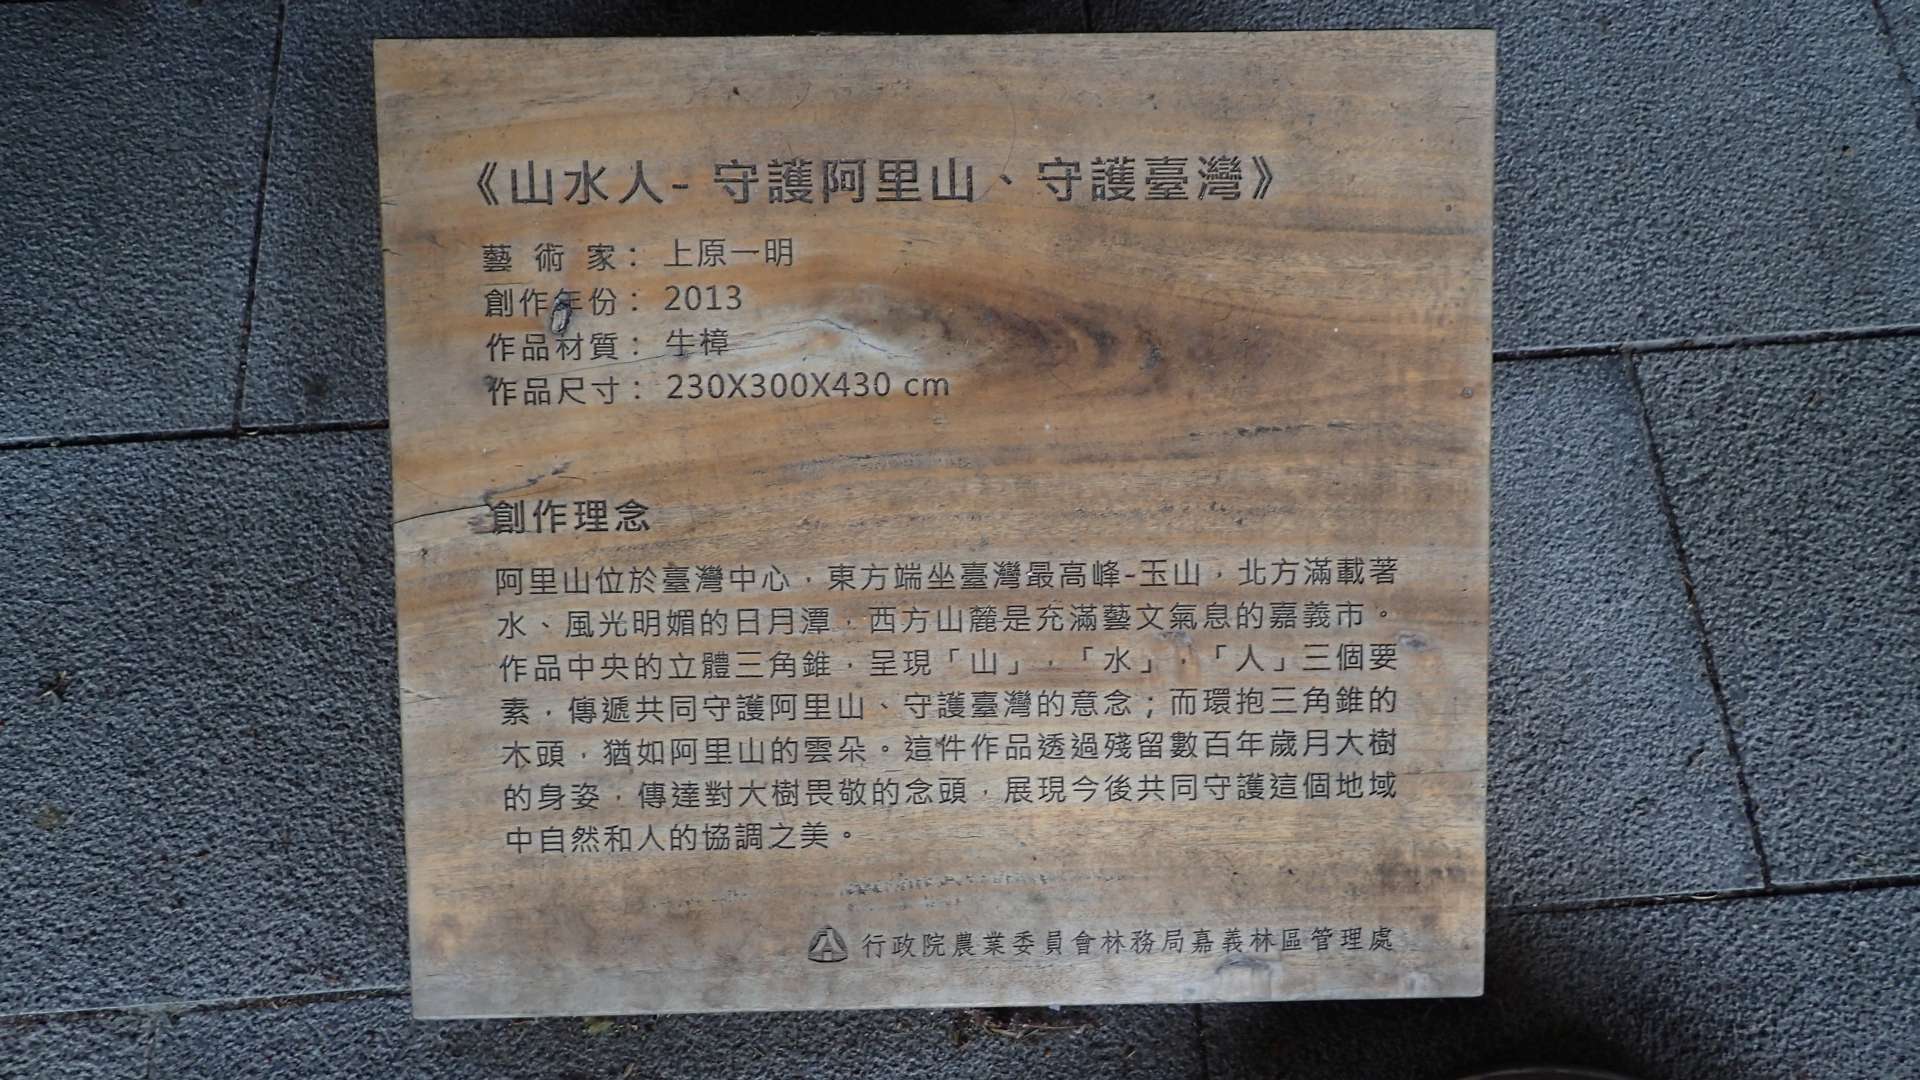 《山水人- 守護阿里山、守護臺灣》
藝術家：上原一明
創作年份：2013
作品材質：牛樟
作品尺寸：230X300X430 cm
創作理念
阿里山位於臺灣中心，東方端坐臺灣最高峰-玉山，北方滿載著
水、風光明媚的日月潭，西方山麓是充滿藝文氣息的嘉義市。
作品中央的立體三角錐，呈現「山」，「水」，「人」三個要
素，傳遞共同守護阿里山、守護臺灣的意念；而環抱三角錐的
木頭，猶如阿里山的雲朵。這件作品透過殘留數百年歲月大樹
的身姿，傳達對大樹畏敬的念頭，展現今後共同守護這個地域
中自然和人的協調之美。
行政院農業委員會林務局嘉義林區管理處